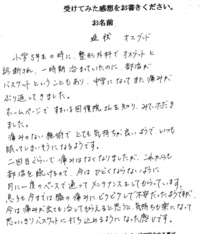 受けてみた感想をお書きください。
お名前
症状 オスグッド
小学5年生の時に、整形外科でオスグッドと
診断され、一時期治まっていたのに、部活が
バスケットということもあり、中学になってまた痛みが
ぶり返してきました。
ホームページですまいる回復院さんを知り、みていただき
ました。
痛みのない施術でとても気持ちが良いようで、いつも
眠ってしまいそうになるようです。
二回目ぐらいで痛みはなくなりましたが、これからも
部活を続けるので、今はひどくならないように
月に一度のペースで通ってメンテナンスしてもらっています。
息子も今までは膝の痛みにビクビクして不安だったようですが、
今は痛みが出ても治してもらえると思うと、気持ちも楽になって
思いっきりバスケットに打ち込めるようになった感じです。